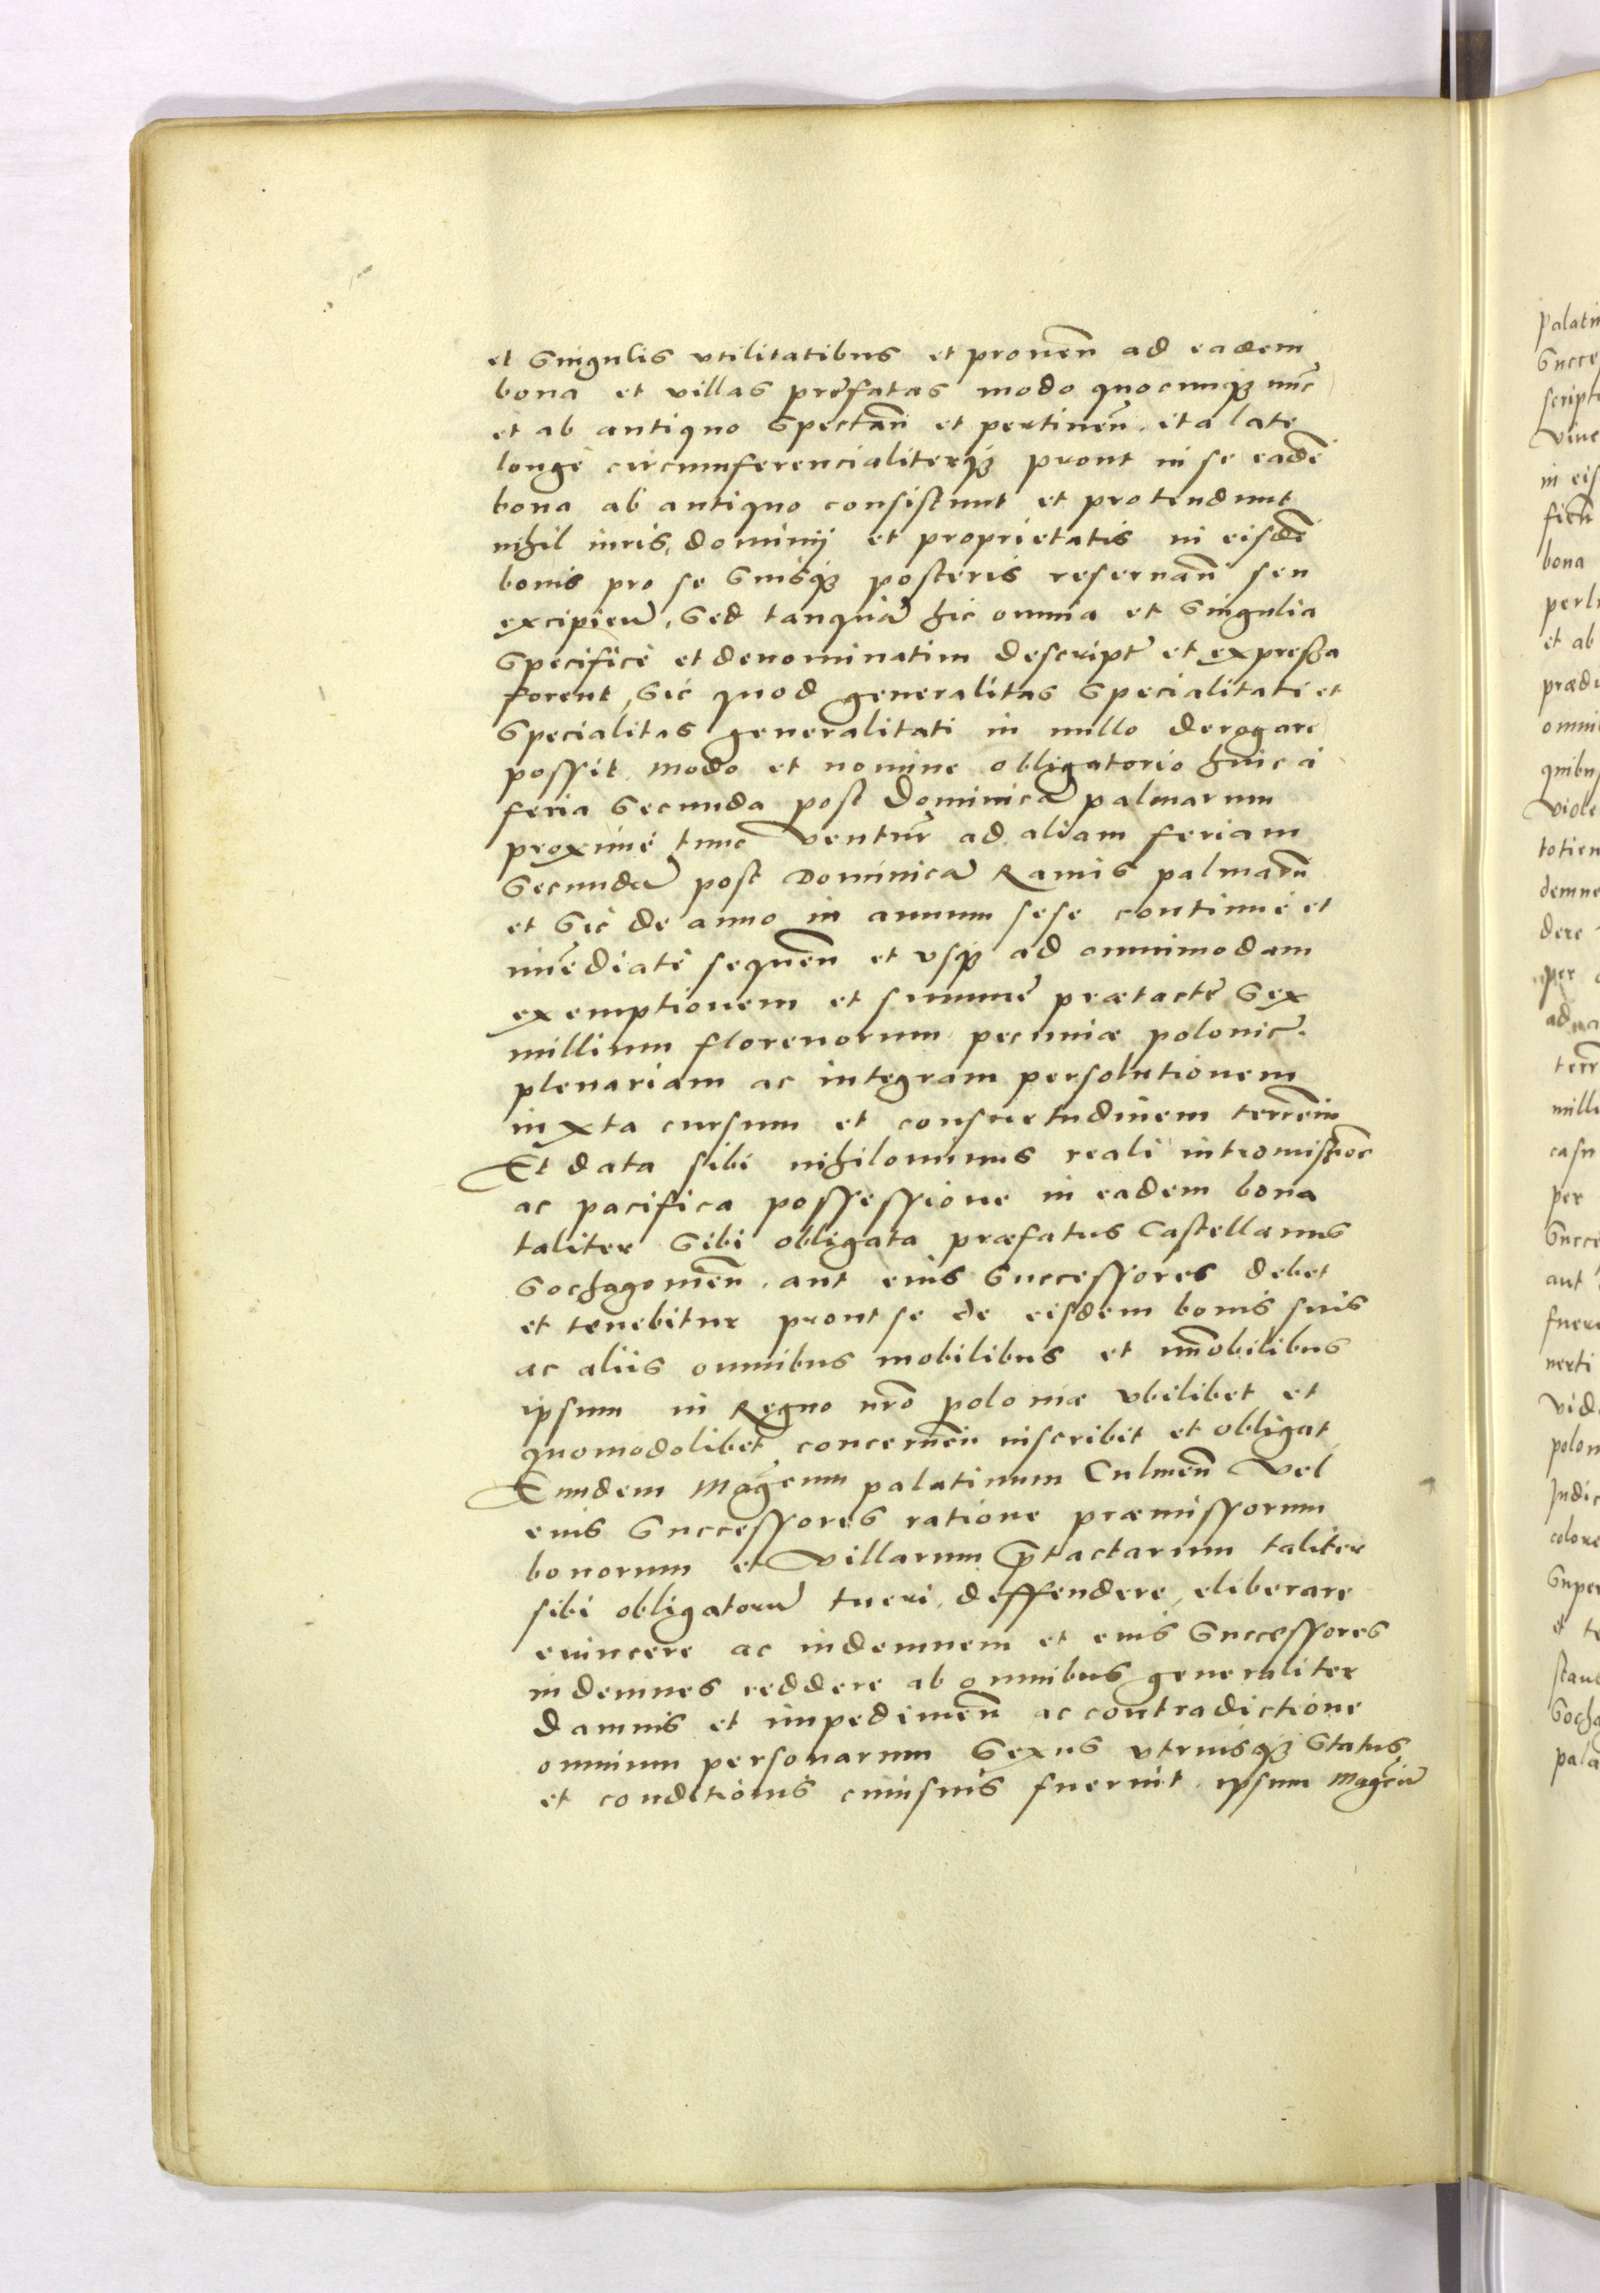 et singulis vtilitatibus et prouen̄ ad eadem
bona et villas præfatas modo quocunq₃ nūc
et ab antiquo spectan̄ et pertinen̄. ita late
longè circumferencialiterq₃ prout in se eadē
bona ab antiquo consistunt et protendunt
nihil iuris, dominij et proprietatis in eisdē
bonis pro se suisq₃ posteris reseruan̄ seu
excipien̄, sed tanquā hic omnia et singulia
specificè et denominatim descripta et expressa
forent, sic quod generalitas specialitati et
specialitas generalitati in nullo derogare
possit. modo et nomine obligatorio hinc à
feria secunda post Dominicā palmarum
proximè tunc ventur̄ ad aliam feriam
secundā post Dominicā Ramis palmarū
et sic de anno in annum sese continuè et
im̄ediatè sequen̄ et vsq₃ ad omnimodam
exemptionem et summę prætactę sex
millium florenorum pecuniæ polonic.
plenariam ac integram persolutionem
iuxta cursum et consuetudinem terren̄
Et data sibi nihilominus reali intromissioē
ac pacifica possessione in eadem bona
taliter sibi obligata præfatus Castellanus
Sochagouien̄. aut eius successores debet
et tenebitur prout se de eisdem bonis suis
ac aliis omnibus mobilibus et im̄obilibus
ipsum in Regno nr̄o poloniæ vbilibet et
quomodolibet concernen̄ inscribit et obligat
Eundem Mag̃cum palatinum Culmen̄ vel
eius successores ratione præmissorum
bonorum et villarum p̄tactarum taliter
sibi obligatorū tueri, deffendere, eliberare
euincere ac indemnem et eius successores
indemnes reddere ab omnibus generaliter
damnis et impedimen̄ ac contradictione
omnium personarum sexus vtriusq₃ status
et conditionis cuiusuis fuerint. ipsum Mag̃cū